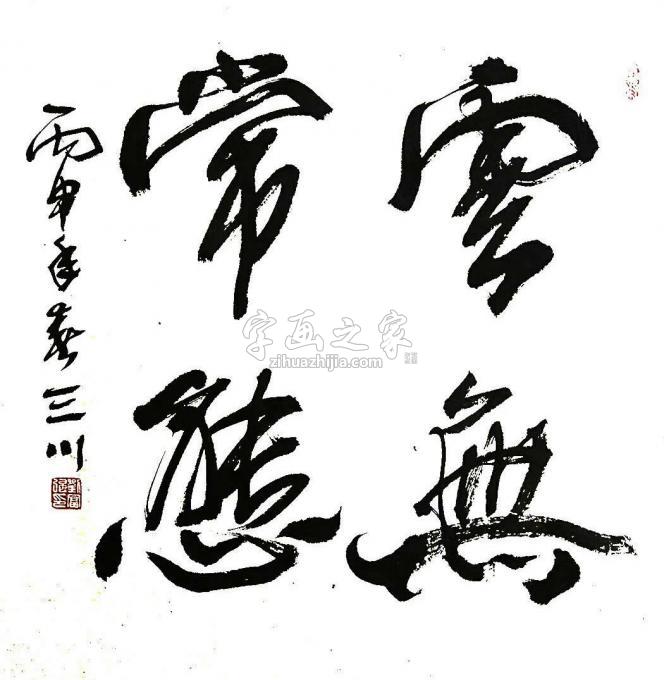 雲無
常態
丙申年春三川
字画之家
zihuazhijia.com